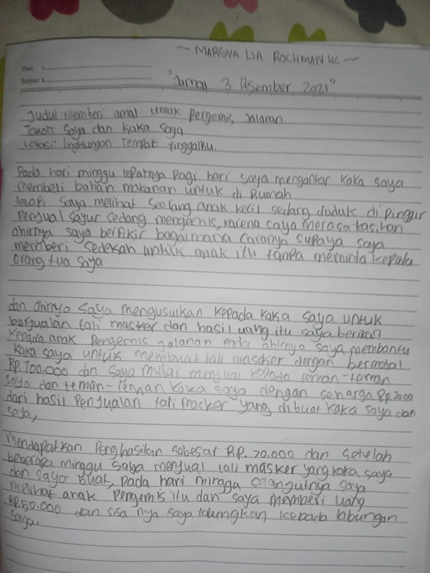 — MAREYA LIA ROCHMAN HC —
Date :
"Jumat 3 Desember 2021"
Judul memberi amal untuk Pengemis Jalanan
Tokoh Saya dan Kaka Saya
Lokasi lingkungan Tempat tinggalku.
Pada hari minggu tepatnya Pagi hari saya mengantar kaka saya
membeli bahan makanan untuk di Rumah
tetapi saya melihat seorang anak kecil sedang duduk di pinggir
Penjual sayur sedang mengemis, karena saya merasa kasihan
ahirnya saya berfikir bagaimana caranya supaya saya
memberi sedekah untuk anak itu tanpa meminta kepala
orang tua saya
dan ahirnya saya mengusulkan kepada kaka saya untuk
berjualan tali masker dan hasil uang itu saya berikan
kepada anak Pengemis jalanan ahirnya saya membantu
Kaka saya untuk membuat tali masker dengan bermodal
RP.100.000 dan saya mulai menjual kepada teman-teman
saya dan teman-teman kaka saya dengan seharga Rp.2000
dari hasil Penjualan tali masker yang di buat kaka saya dan
saya,
mendapatkan Penghasilan sebesar RP. 70.000 dan setelah
beberapa minggu saya menjual tali masker yang kaka saya
dan saya buat, pada hari minggu saya
melihat anak Pengemis itu dan saya memberi uang
RP.50.000 dan sisa nya saya tabungkan kepada tabungan
saya.